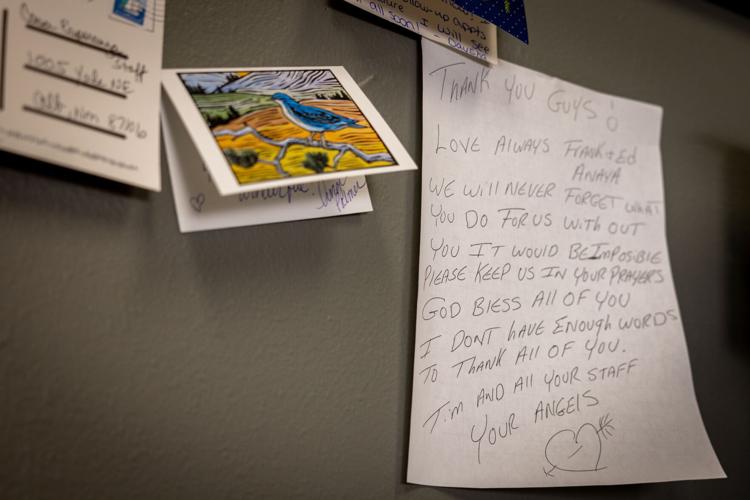 Staff
1005 Yale NE
Alb, Nm 87106
follow-up appts
I will see
all soon!
wonderful.
THANK YOU GUYS!
LOVE AlWAYS FRANK + Ed
ANAYA
WE Will NEVER FORGET WHAT
YOU DO FOR US WITH OUT
YOU IT WOULD BE IMPOSIBLE
PLEASE KEEP US IN YOUR PRAYERS
GOD BlESS All OF YOU
I DONT HAVE ENOUGH WORDS
TO THANK All OF YOU.
TiM AND All YOUR STAFF
YOUR ANGElS